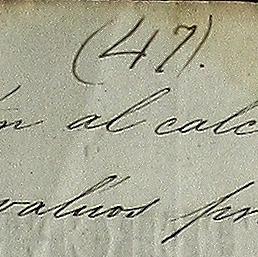 (47).
ón al calc
valúos pr